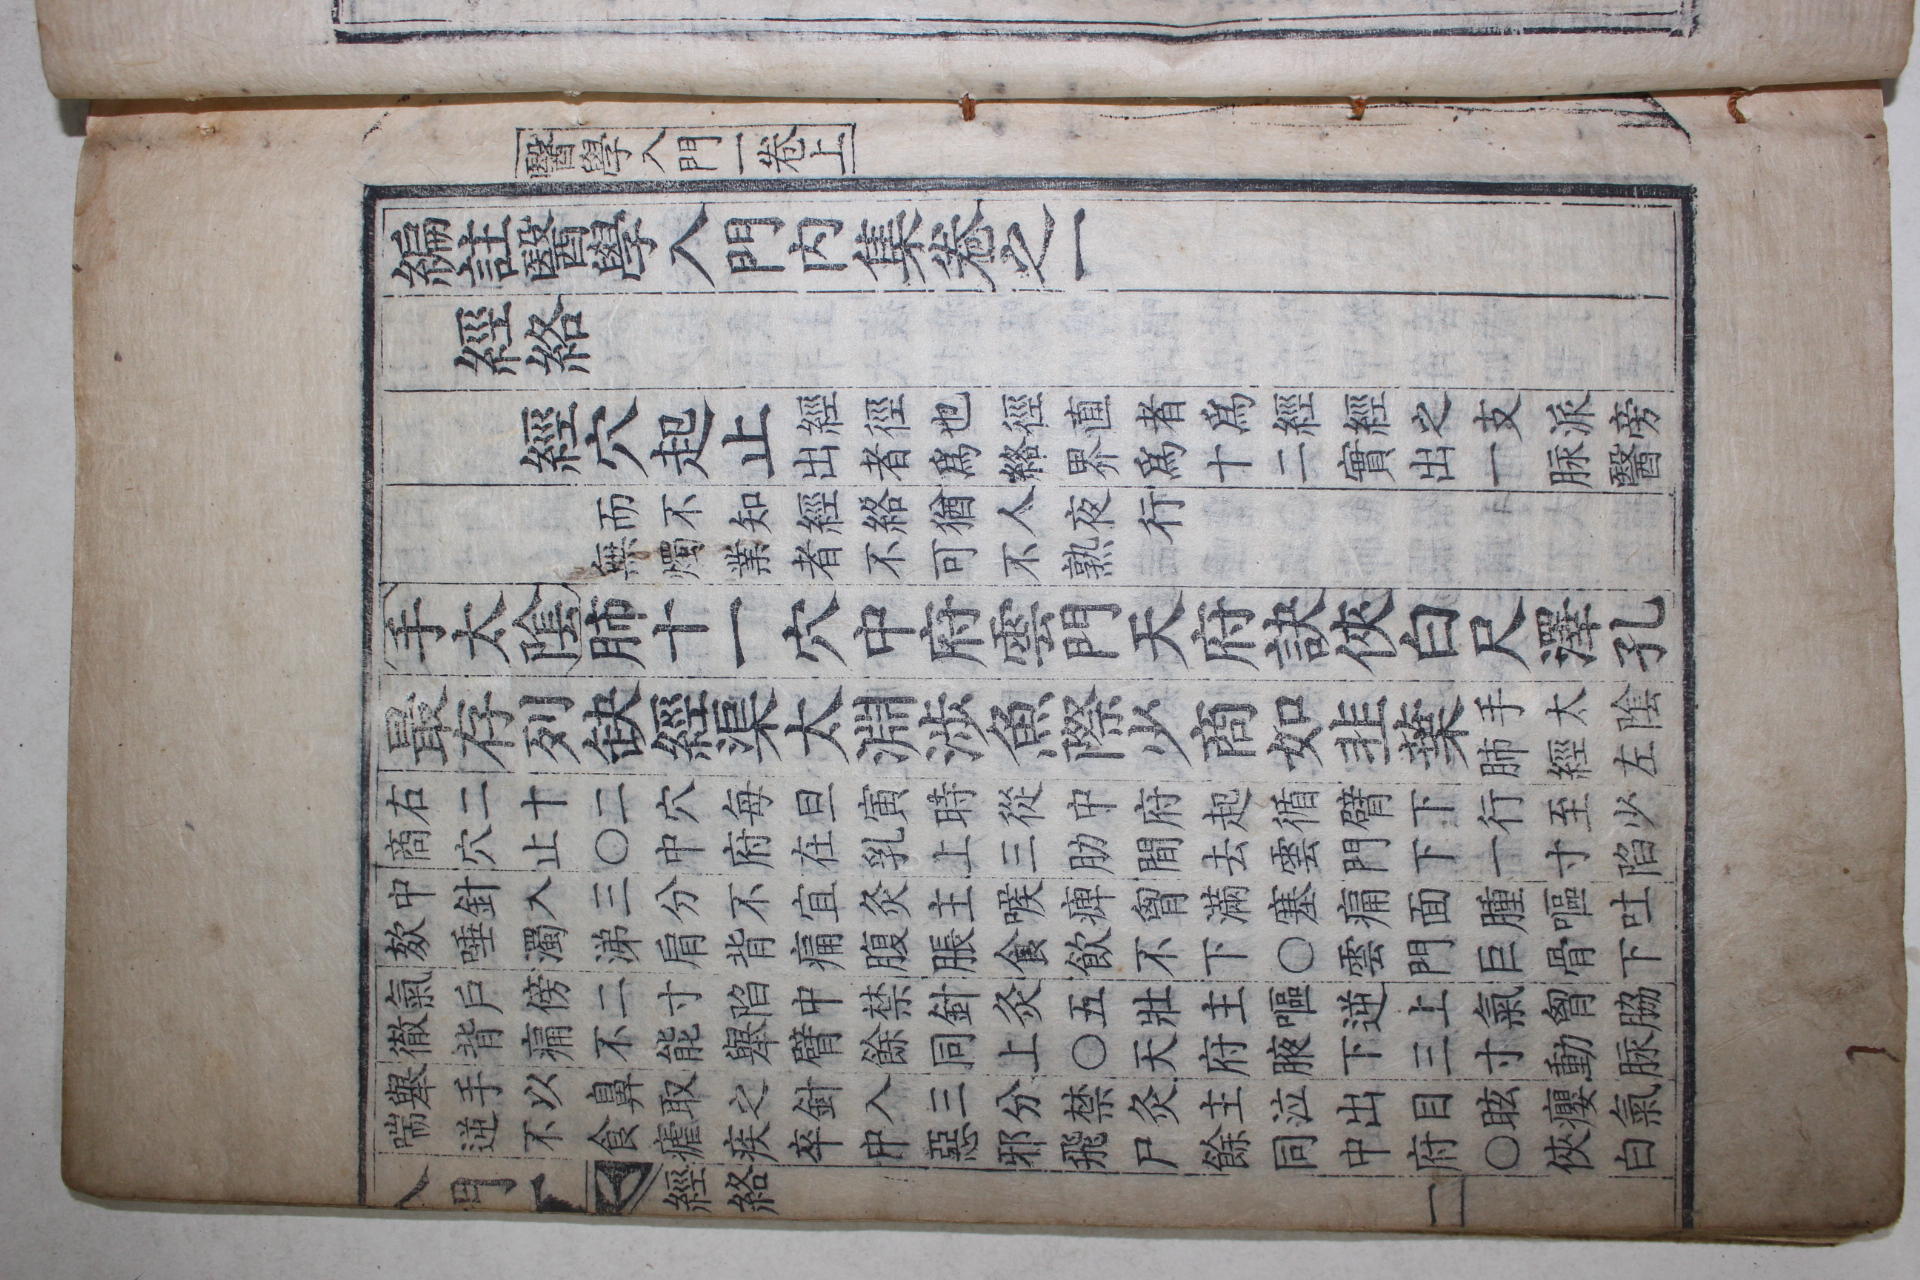 醫學入門一卷上
編註醫學入門內集卷之一
經絡
經穴起止
經徑也徑直者爲經經之支派旁
出者爲絡界爲十二實出一脉醫
而不知經絡猶人夜行
無燭業者不可不熟
手太陰肺十一穴中府雲門天府訣俠白尺澤孔
最存列缺經渠太淵涉魚際少商如韭葉
手太陰
肺經左
右二十二穴每旦寅時從中府起循臂下行至少
商穴止〇中府在乳上三肋間去雲門下一寸陷
中針入三分不宜灸主喉痺胷滿塞痛面腫嘔吐
欬唾濁涕肩背痛腹脹食飲不下〇雲門巨骨下
氣戶傍二寸陷中禁針灸五壯主嘔逆上氣胷脇
徹背痛不能舉臂餘同上〇天府腋下三寸動脉
舉手以鼻取之針入三分禁灸主泣出目眩癭氣
喘逆不食瘧疾卒中惡邪飛尸餘同中府〇俠白
入門
經絡
一